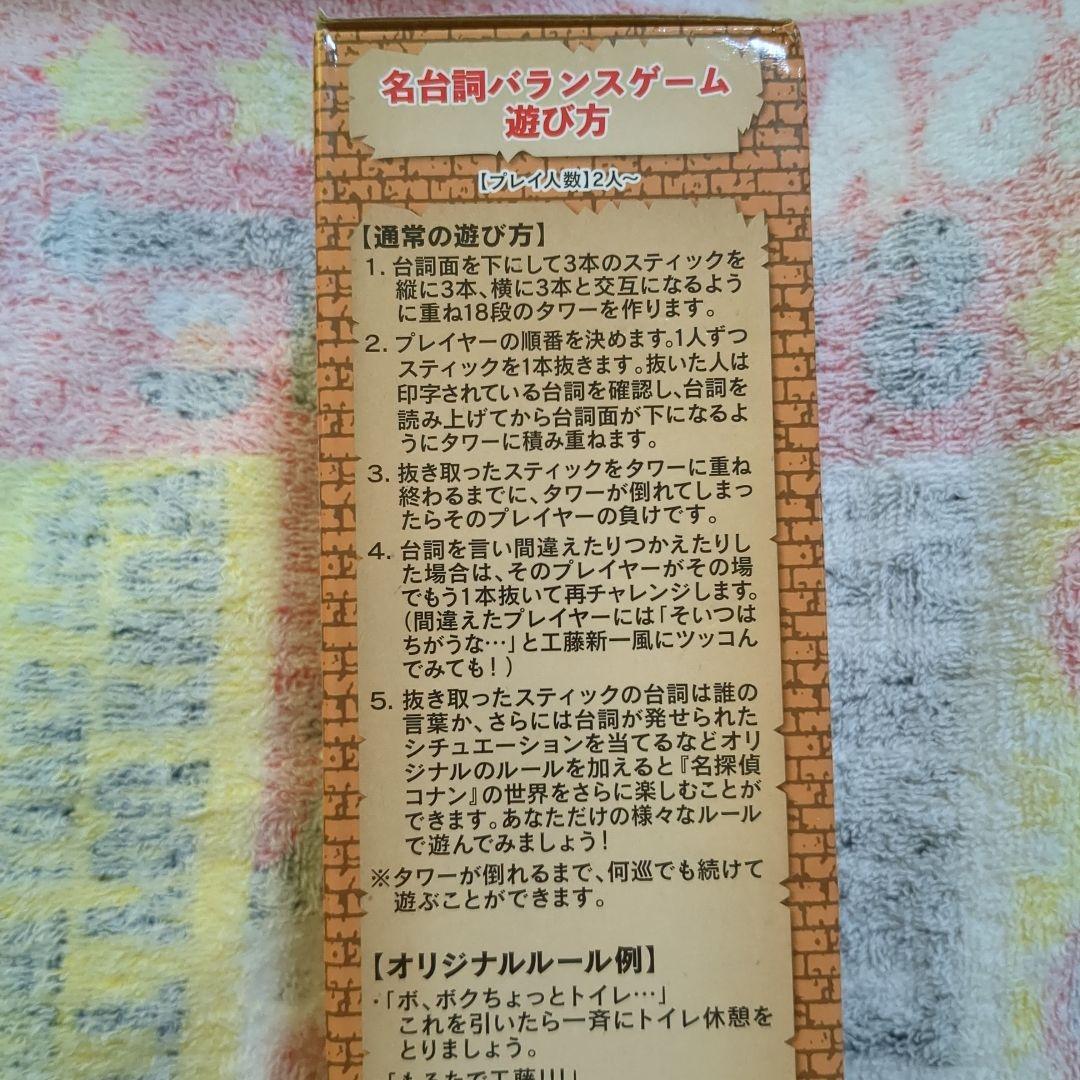 名台詞バランスゲーム
遊び方
【プレイ人数】2人~
【通常の遊び方】
1. 台詞面を下にして3本のスティックを
縦に3本、横に3本と交互になるよう
に重ね18段のタワーを作ります。
2. プレイヤーの順番を決めます。1人ずつ
スティックを1本抜きます。抜いた人は
印字されている台詞を確認し、台詞を
読み上げてから台詞面が下になるよ
うにタワーに積み重ねます。
3. 抜き取ったスティックをタワーに重ね
終わるまでに、タワーが倒れてしまっ
たらそのプレイヤーの負けです。
4. 台詞を言い間違えたりつかえたりし
た場合は、そのプレイヤーがその場
でもう1本抜いて再チャレンジします。
(間違えたプレイヤーには「そいつは
ちがうな…」と工藤新一風にツッコん
でみても!)
5. 抜き取ったスティックの台詞は誰の
言葉か、さらには台詞が発せられた
シチュエーションを当てるなどオリ
ジナルのルールを加えると『名探偵
コナン』の世界をさらに楽しむことが
できます。あなただけの様々なルール
で遊んでみましょう!
※タワーが倒れるまで、何巡でも続けて
遊ぶことができます。
【オリジナルルール例】
・「ボ、ボクちょっとトイレ…」
これを引いたら一斉にトイレ休憩を
とりましょう。